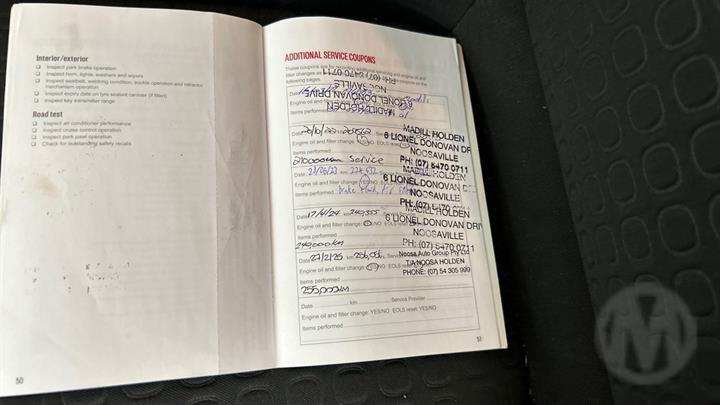 Interior/exterior
❑ Inspect park brake operation
❑ Inspect horn, lights, washers and wipers
❑ Inspect seatbelt, webbing condition, buckle operation and retractor
mechanism operation
❑ Inspect expiry date on tyre sealant canister (if fitted)
❑ Inspect key transmitter range
Road test
❑ Inspect air conditioner performance
❑ Inspect cruise control operation
❑ Inspect park pawl operation
❑ Check for outstanding safety recalls
50
ADDITIONAL SERVICE COUPONS
These coupons are for recording additional servicing and engine oil and
filter changes as
following pages.
PH: (07) 5470 0711
NOOSAVILLE
6 LIONEL DONOVAN DRIVE
MADILL HOLDEN
Date
Engine oil and
Items performed
Date 21/10/22 km 205562
MADILL HOLDEN
Engine oil and filter change YES/NO EOLS reset
6 LIONEL DONOVAN DRI
Items performed
NOOSAVILLE
210000km Service
PH: (07) 5470 0711
Date km
MADILL HOLDEN
Engine oil and filter change YES/NO
6 LIONEL DONOVAN D
Items performed
NOOSAVILLE
PH: (07) 5470
MADILL HOLDEN
Date 17/4/24 km 240,355
6 LIONEL DONOVAN DRI
Engine oil and filter change YES/NO EOLS
NOOSAVILLE
Items performed
240,000KM
PH: (07) 5470 0711
Date 27/2/25 km 256,056
Noosa Auto Group Pty Ltd
Engine oil and filter change YES/NO EOLS
T/A NOOSA HOLDEN
Items performed
PHONE: (07) 54 305 999
255,000km
Date km Service Provider
Engine oil and filter change: YES/NO EOLS reset: YES/NO
Items performed
51